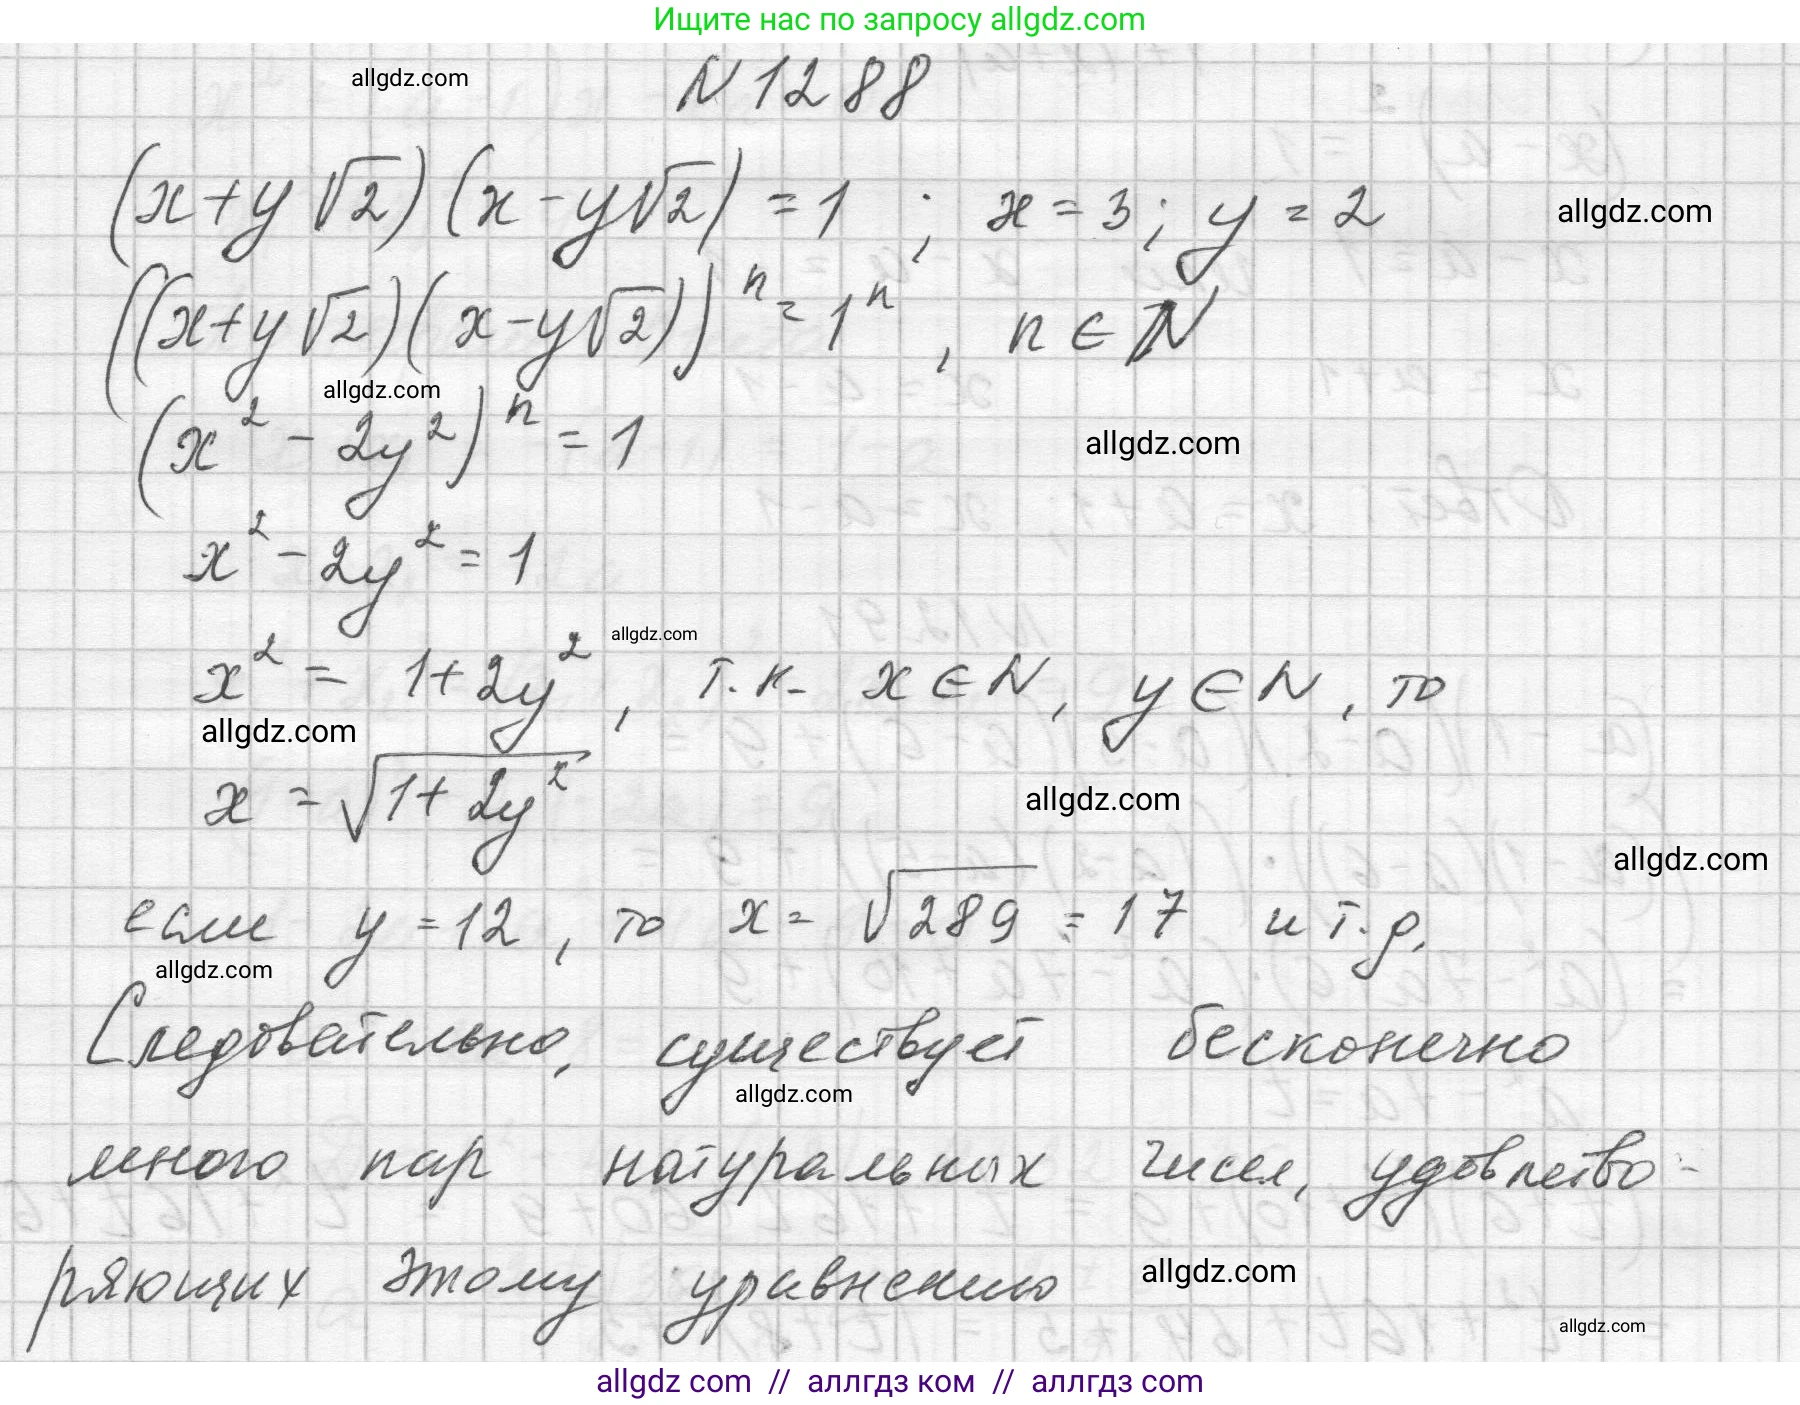 Ищите нас по запросу allgdz.com
allgdz.com
N 1288
(x+y√2)(x-y√2)=1; x=3; y=2
allgdz.com
((x+y√2)(x-y√2))ⁿ=1ⁿ, n∈N
allgdz.com
(x²-2y²)ⁿ=1
allgdz.com
x²-2y²=1
allgdz.com
x²= 1+2y², т.к. x∈N, y∈N, то
allgdz.com
x=√(1+2y²)
allgdz.com
allgdz.com
если y=12, то x=√289=17 и т.д.
allgdz.com
Следовательно, существует бесконечно
allgdz.com
много пар натуральных чисел, удовлетво-
ряющих этому уравнению
allgdz.com
allgdz.com
allgdz com // аллгдз ком // аллгдз com